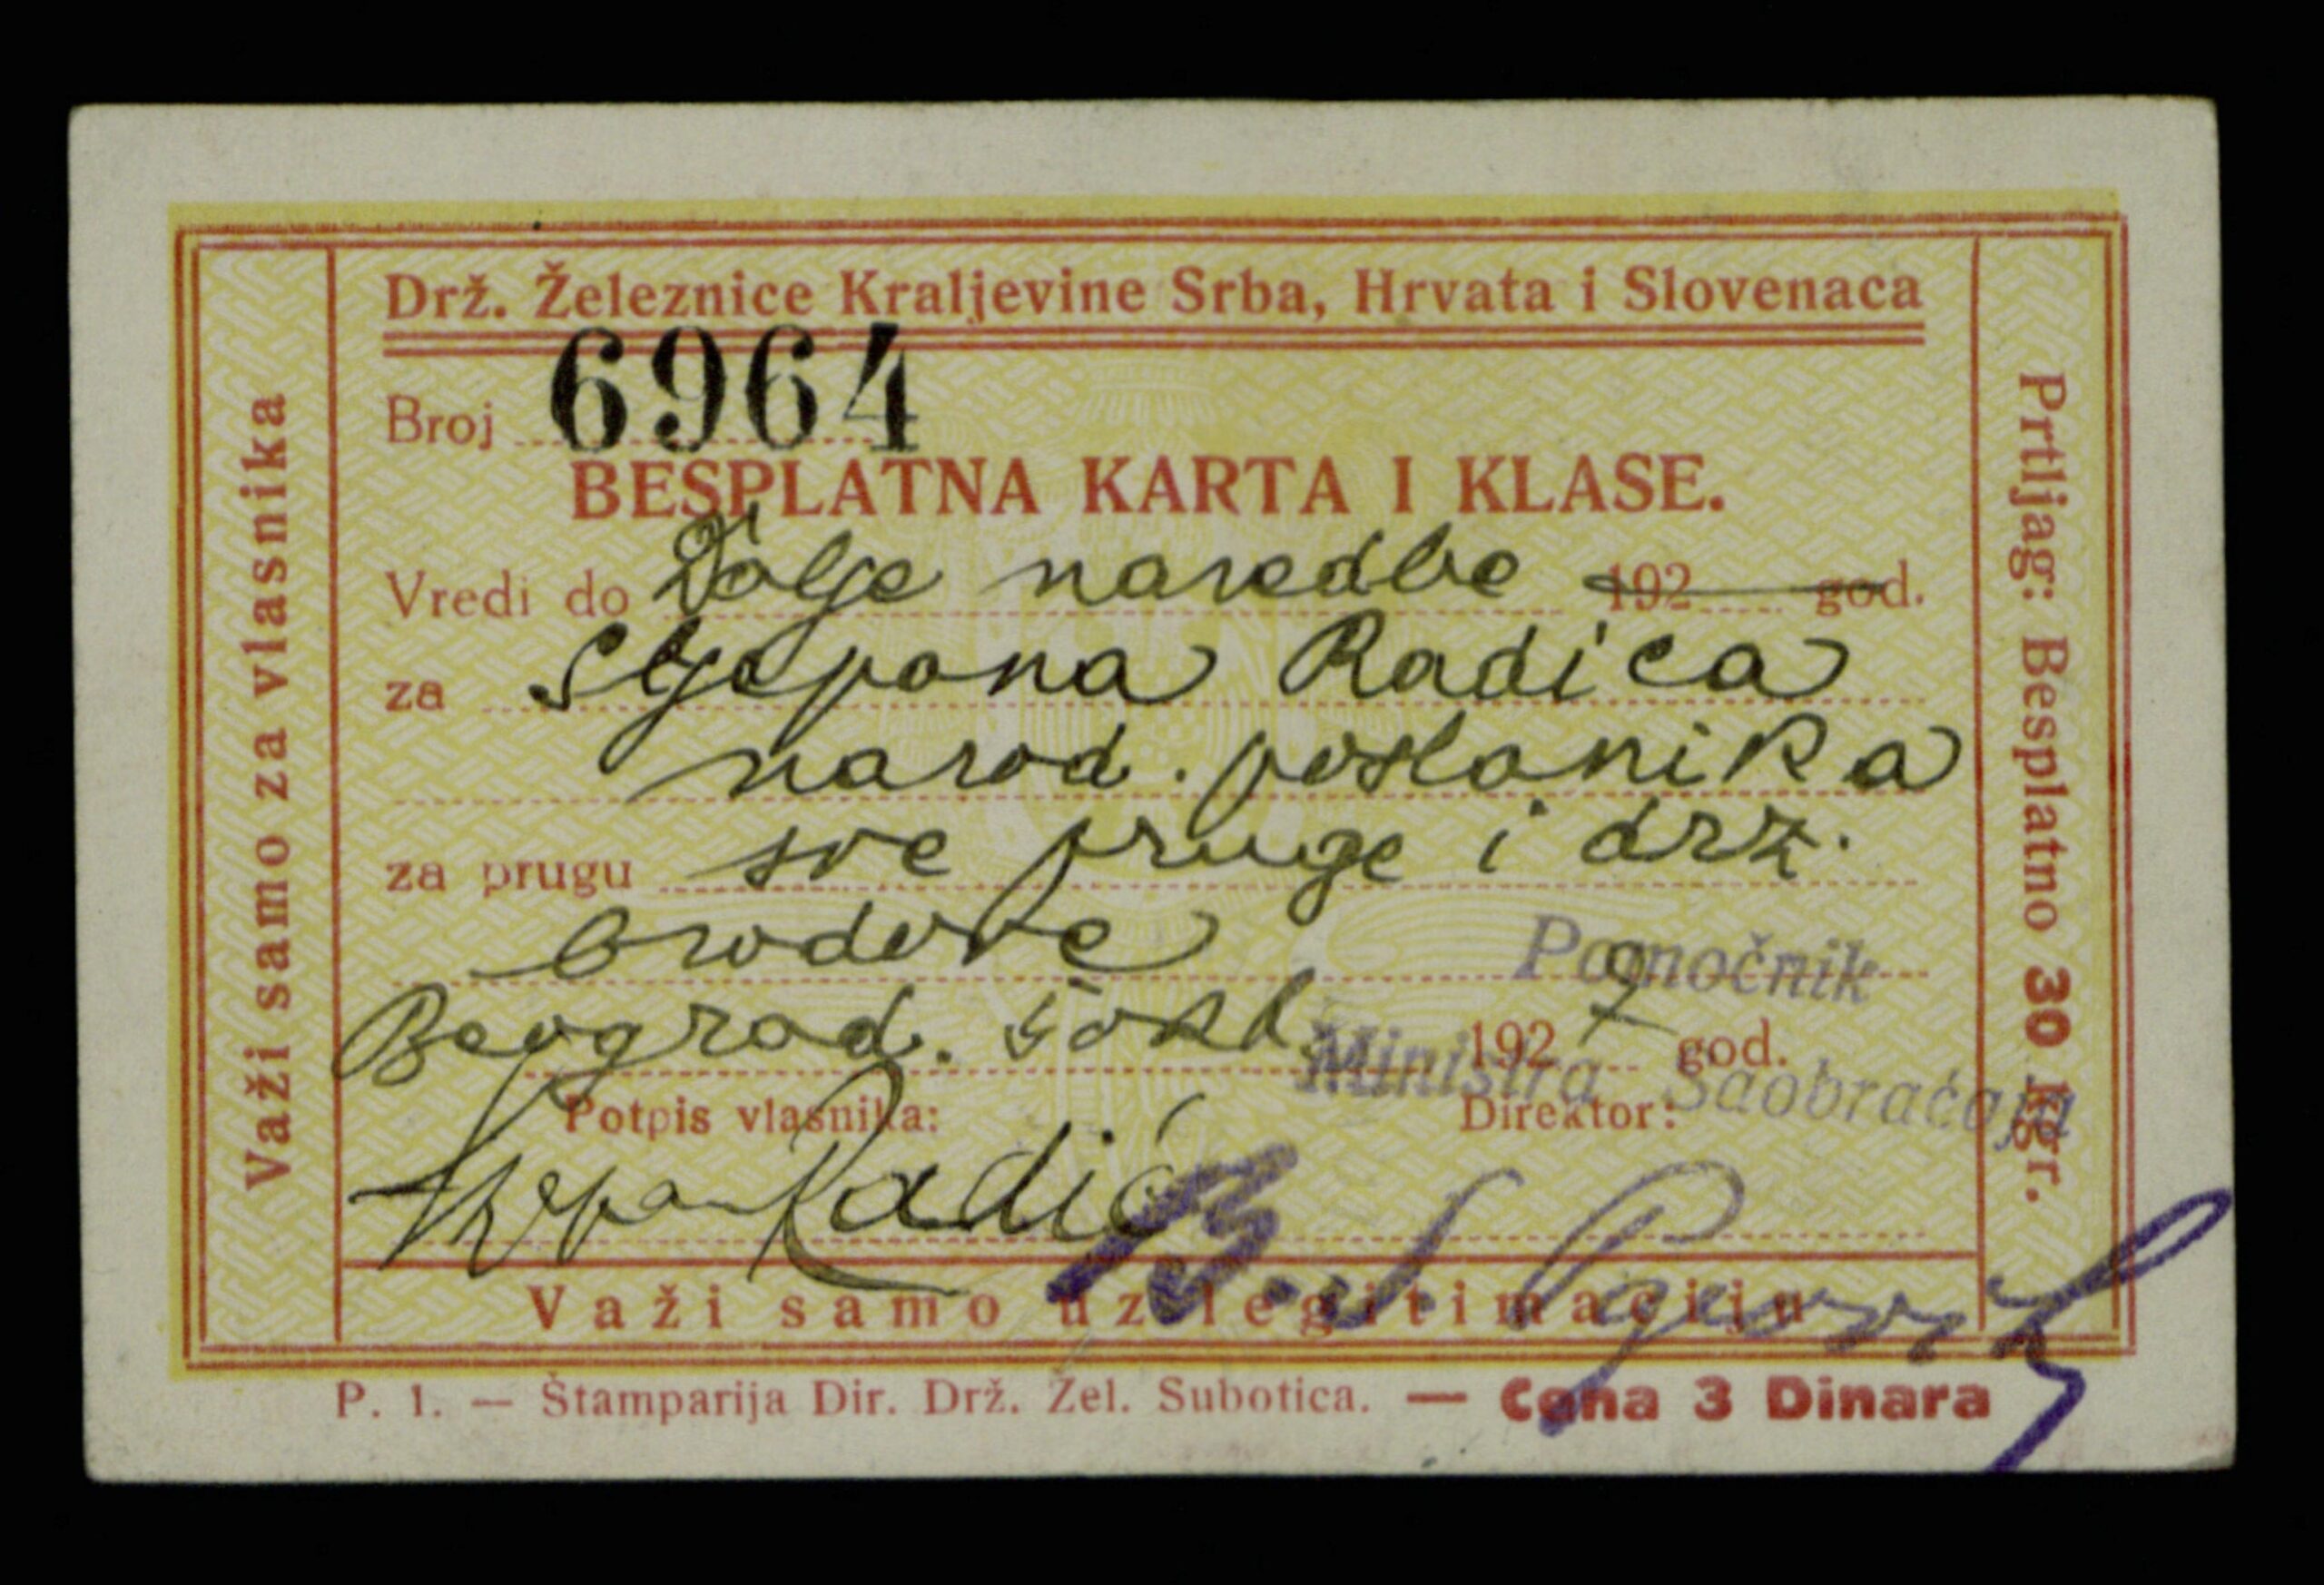 Drž. Železnice Kraljevine Srba, Hrvata i Slovenaca
Broj 6964
BESPLATNA KARTA I KLASE.
Vredi do Dalje naredbe 192 god.
za Stjepana Radića
narod. poslanika
za prugu sve pruge i drž.
brodove
Pomoćnik
Beograd. 5 okt. 1927 god.
Ministra Saobraćaja
Potpis vlasnika: Direktor:
Stjepan Radić
Važi samo uz legitimaciju
P. 1. — Štamparija Dir. Drž. Žel. Subotica. — Cena 3 Dinara
Važi samo za vlasnika
Prtljag: Besplatno 30 kgr.